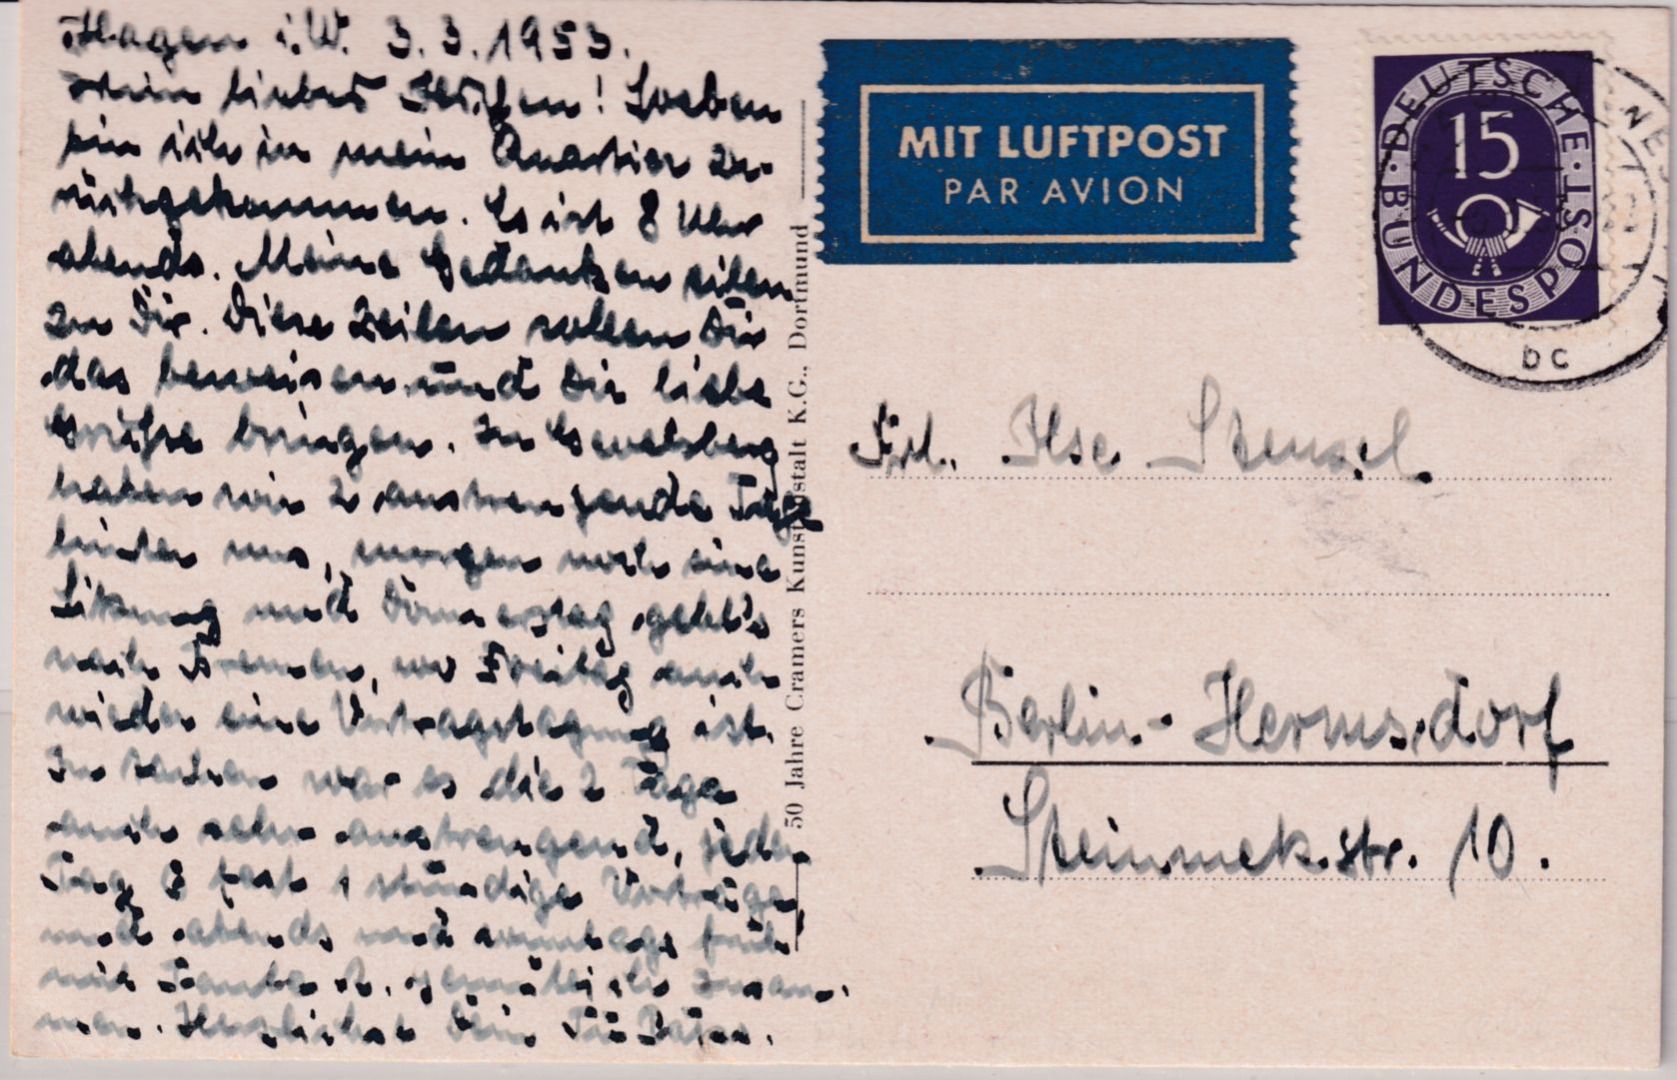 Hagen i.W. 3.3.1953.
Mein liebes Ilschen! Soeben
bin ich in mein Quartier zu-
rückgekommen. Es ist 8 Uhr
abends. Meine Gedanken eilen
zu Dir. Diese Zeilen sollen Dir
das beweisen und Dir liebe
Grüße bringen. In Gevelsberg
haben wir 2 anstrengende Tage
hinter uns, morgen noch eine
Sitzung und Donnerstag geht's
nach Bremen, wo Freitag auch
wieder eine Vortragstagung ist.
In war es die 2 Tage
auch sehr anstrengend, jeden
Tag 8 fast 1 stündige Vorträge
und abends und sonntags früh
mit Tante gemütlich zusam-
men. Herzlichst Dein
50 Jahre Cramers Kunstanstalt K.G., Dortmund
MIT LUFTPOST
PAR AVION
DEUTSCHE BUNDESPOST
15
bc
Frl. Ilse Stensel.
Berlin-Hermsdorf
Steinmetzstr. 10.